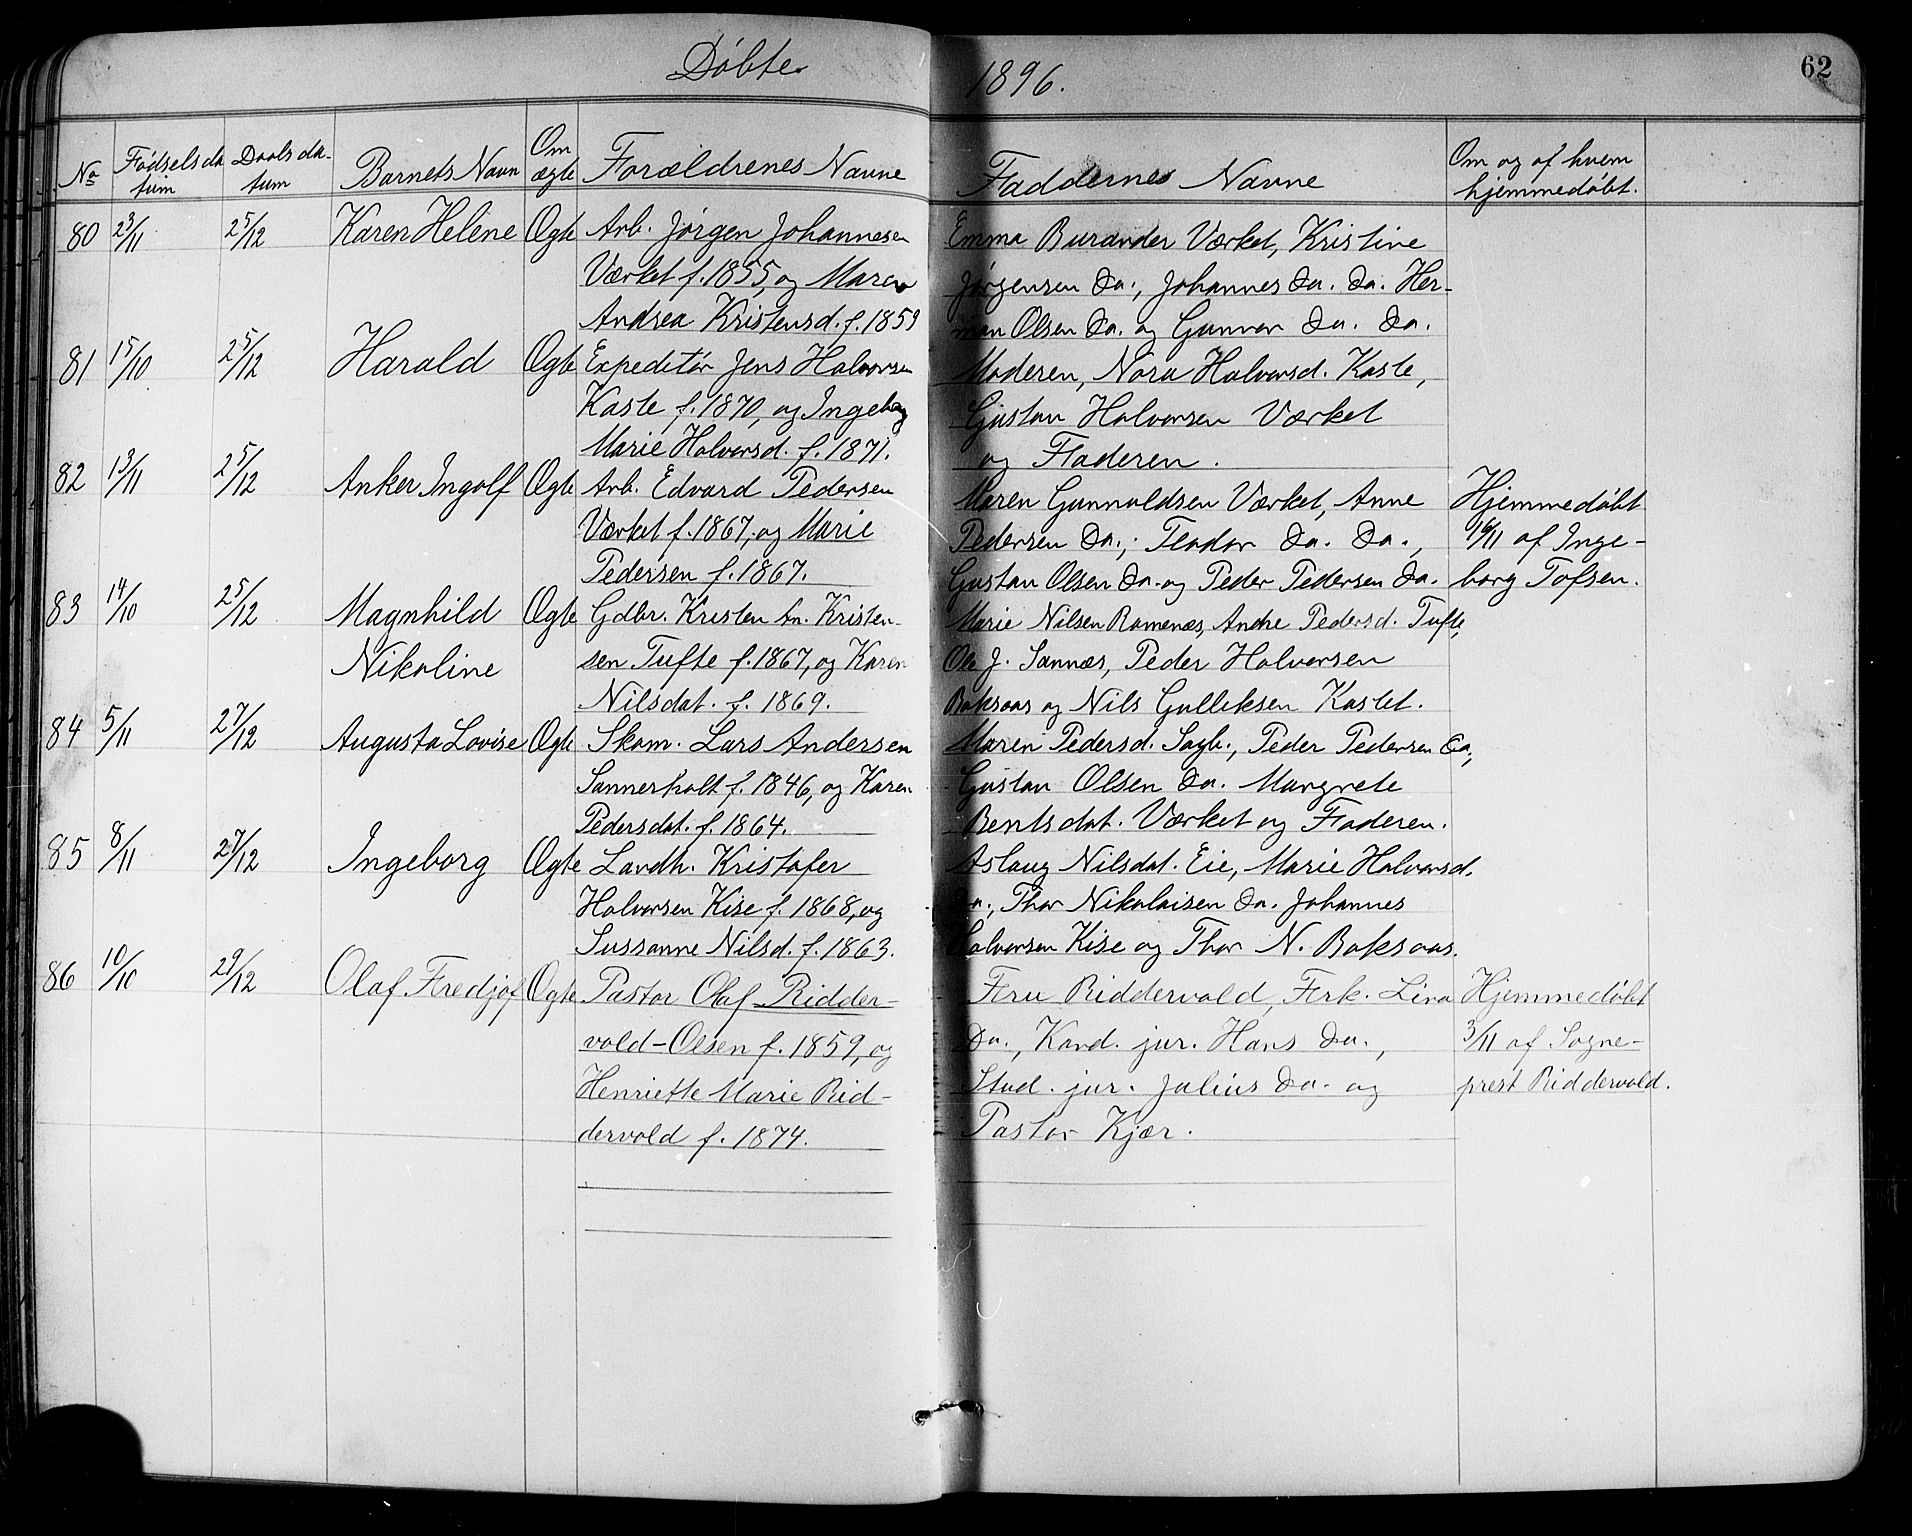 Döbte 1896. 62
No Födselsda- Daabsda- Barnets Navn Om Forældrenes Navne Faddernes Navne Om og af hvem
tum tum ægte hjemmedøbt.
80 23/11 25/12 Karen Helene Ægte Arb. Jørgen Johannesen Emma Burander Værket, Kristine
Værket f. 1855, og Maren Jørgensen do., Johannes do. do. Her-
Andrea Kristensd. f. 1859 man Olsen do. og Gunvor do. do.
81 15/10 25/12 Harald Ægte Expeditør Jens Halvorsen Moderen, Nora Halvorsd. Kaste,
Kaste f. 1870, og Ingeborg Gustav Halvorsen Værket
Marie Halvorsd. f. 1871. og Faderen.
82 13/11 25/12 Anker Ingolf Ægte Arb. Edvard Pedersen Maren Gunnuldsen Værket, Anne Hjemmedøbt
Værket f. 1867, og Marie Pedersen do.; Teodor do. do., 16/11 af Inge-
Pedersen f. 1867. Gustav Olsen do. og Peder Pedersen do. borg Tofsen.
83 14/10 25/12 Magnhild Ægte Gdbr. Kristen An. Kristen- Marie Nilsen Ramenæs, Andre Pedersd. Tufte,
Nikoline sen Tufte f. 1867, og Karen Ole J. Sannæs, Peder Halvorsen
Nilsdat. f. 1869. Baksaas og Nils Gulliksen Kastet.
84 5/11 27/12 Augusta Lovise Ægte Skom. Lars Andersen Maren Pedersd. Sagb., Peder Pedersen do,
Sannerholt f. 1846, og Karen Gustav Olsen do. Margrete
Pedersdat. f. 1864. Bentsdat. Værket og Faderen.
85 8/11 27/12 Ingeborg Ægte Landh. Kristofer Aslaug Nilsdat. Eie, Marie Halvorsd.
Halvorsen Kise f. 1868, og do., Thor Nikolaisen do. Johannes
Sussanne Nilsd. f. 1863. Halvorsen Kise og Thor N. Baksaas.
86 10/10 29/12 Olaf Fredjof Ægte Pastor Olaf Ridder- Fru Riddervold, Frk. Lina Hjemmedøbt
vold-Olsen f. 1859, og do., Kand. jur. Hans do., 3/11 af Sogne-
Henriette Marie Rid- Stud. jur. Julius do. og prest Riddervold.
dervold f. 1874. Pastor Kjær.